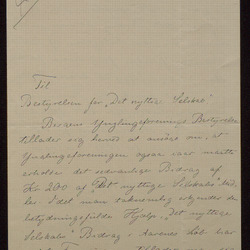 Til
Bestyrelsen for „Det nyttige Selskab".
Bergens Ynglingeforenings Bestyrelse
tillader sig herved at ansøge om, at
Ynglingeforeningen ogsaa iaar maatte
erholde det sedvanlige Bidrag af
Kr 200 af Det nyttige Selskabs Mid-
ler. Idet man taknemlig erkjender den
betydningsfulde Hjælp, „Det nyttige
Selskabs" Bidrag i Aarenes Løb har